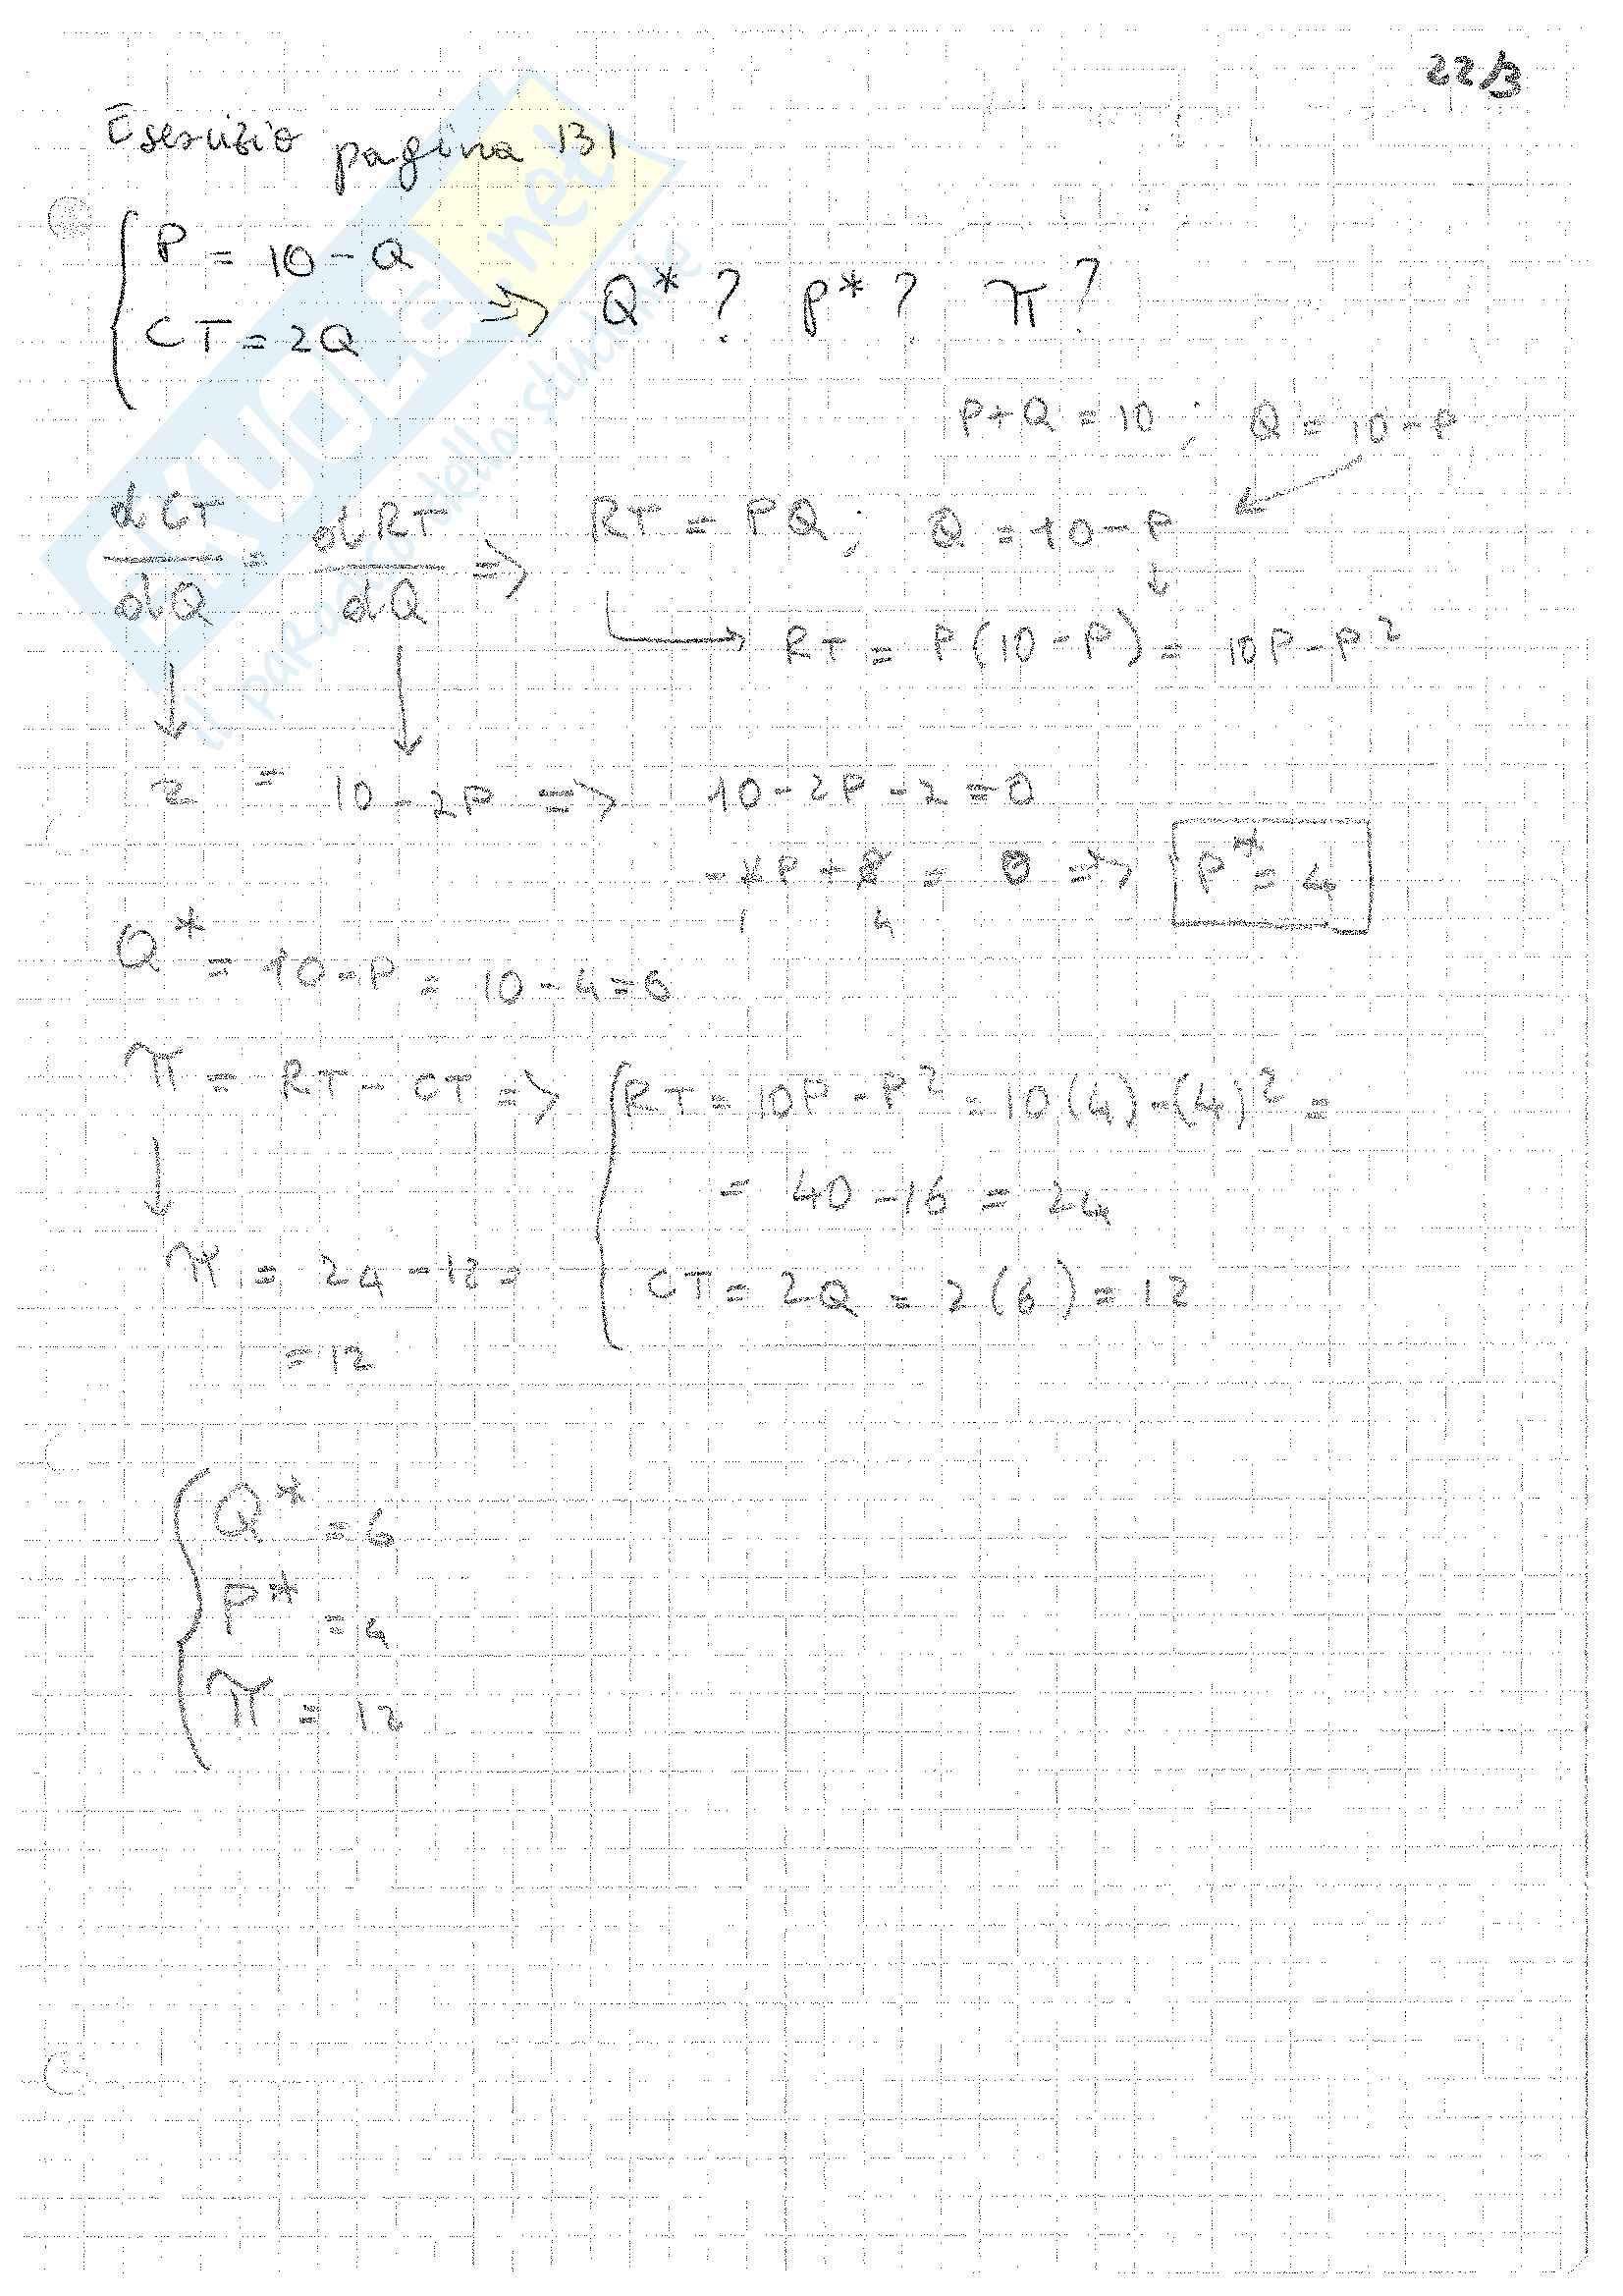 22/3
Esercizio pagina 131
P = 10 - Q
CT = 2Q ⇒ Q* ? P* ? π ?
P+Q = 10 ; Q = 10 - P
dCT/dQ = dRT/dQ ⇒ RT = PQ ; Q = 10 - P
RT = P(10 - P) = 10P - P²
2 = 10 - 2P ⇒ 10 - 2P - 2 = 0
- 2P + 8 = 0 ⇒ P* = 4
1 4
Q* = 10 - P = 10 - 4 = 6
π = RT - CT ⇒ RT = 10P - P² = 10(4) - (4)² =
= 40 - 16 = 24
π = 24 - 12 =
CT = 2Q = 2(6) = 12
= 12
Q* = 6
P* = 4
π = 12
SKUOLA.net
il paradiso dello studente